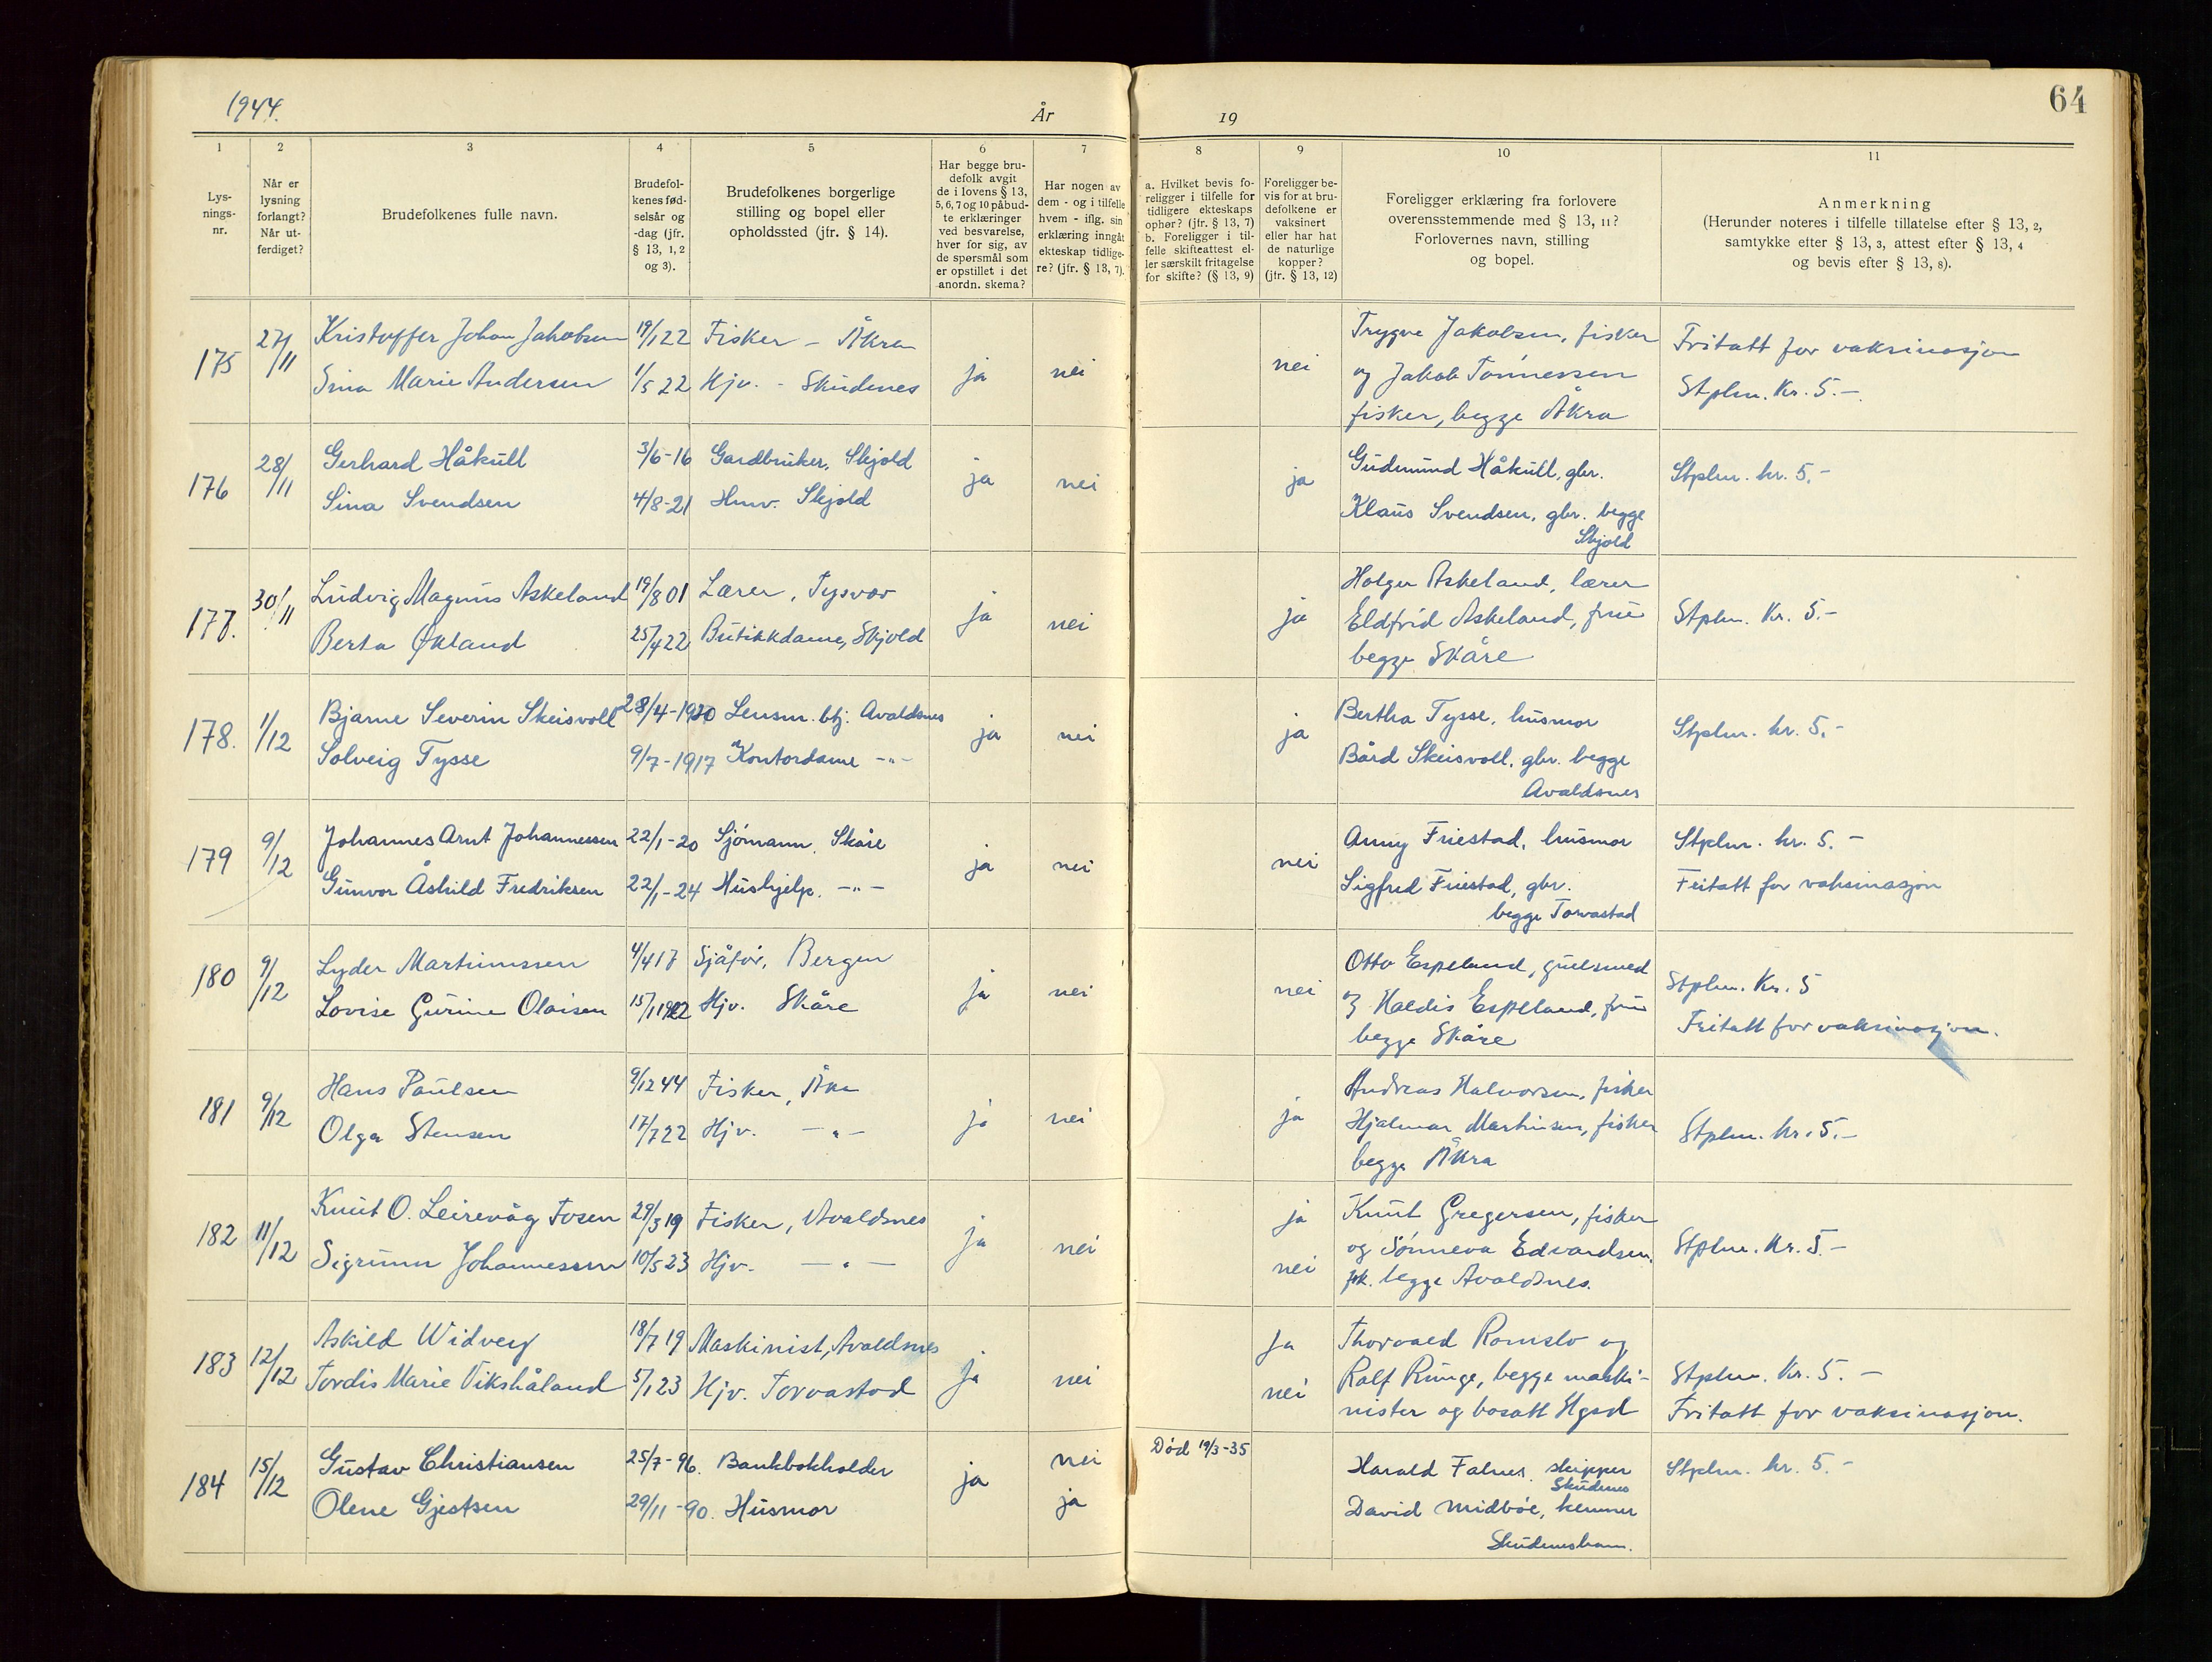 1944.
År
19
64
1
2
3
4
5
6
7
8
9
10
11
Lys-
nings-
nr.
Når er
lysning
forlangt?
Når ut-
ferdiget?
Brudefolkenes fulle navn.
Brudefol-
kenes fød-
selsår og
-dag (jfr.
§ 13, 1, 2
og 3).
Brudefolkenes borgerlige
stilling og bopel eller
opholdssted (jfr. § 14).
Har begge bru-
defolk avgit
de i lovens § 13,
5, 6, 7 og 10 påbud-
te erklæringer
ved besvarelse,
hver for sig, av
de spørsmål som
er opstillet i det
anordn. skema?
Har nogen av
dem - og i tilfelle
hvem - iflg. sin
erklæring inngåt
ekteskap tidlige-
re? (jfr. § 13, 7).
a. Hvilket bevis fo-
religger i tilfelle for
tidligere ekteskaps
ophør? (jfr. § 13, 7)
b. Foreligger i til-
felle skifteattest el-
ler særskilt fritagelse
for skifte? (§ 13, 9)
Foreligger be-
vis for at bru-
defolkene er
vaksinert
eller har hat
de naturlige
kopper?
(jfr. § 13, 12)
Foreligger erklæring fra forlovere
overensstemmende med § 13, 11?
Forlovernes navn, stilling
og bopel.
Anmerkning
(Herunder noteres i tilfelle tillatelse efter § 13, 2,
samtykke efter § 13, 3, attest efter § 13, 4
og bevis efter § 13, 8).
175 27/11 Kristoffer Johan Jakobsen 19/1 22 Fisker - Åkra ja nei nei Trygve Jakobsen, fisker Fritatt for vaksinasjon
Sina Marie Andersen 1/5 22 Hjv. - Skudenes og Jakob Tønnessen Stplm. Kr. 5.-
fisker, begge Åkra
176 28/11 Gerhard Håkull 3/6-16 Gardbruker, Skjold ja nei ja Gudmund Håkull, gbr. Stplm. kr. 5.-
Sina Svendsen 4/8-21 Hmv. Skjold Klaus Svendsen, gbr. begge
Skjold
177. 30/11 Ludvig Magnus Askeland 19/8 01 Lærer, Tysvær ja nei ja Holger Askeland, lærer Stplm. Kr. 5.-
Berta Økland 25/4 22 Butikkdame, Skjold Eldfrid Askeland, frue
begge Skåre
178. 1/12 Bjarne Severin Skeisvoll 28/4-1920 Lensm. btj. Avaldsnes ja nei ja Bertha Tysse, husmor Stplm. kr. 5.-
Solveig Tysse 9/7-1917 Kontordame -"- Bård Skeisvoll, gbr. begge
Avaldsnes
179 9/12 Johannes Arnt Johannessen 22/1-20 Sjømann, Skåre ja nei nei Anny Friestad, husmor Stplm. kr. 5.-
Gunvor Åshild Fredriksen 22/1-24 Hushjelp. -"- Sigfred Friestad, gbr. Fritatt for vaksinasjon
begge Torvastad
180 9/12 Lyder Martinussen 4/4 17 Sjåfør, Bergen ja nei nei Otto Espeland, gullsmed Stplm. Kr. 5
Lovise Gurine Olaisen 15/1 1922 Hjv. Skåre og Haldis Espeland, frue Fritatt for vaksinasjon.
begge Skåre
181 9/12 Hans Paulsen 9/12 44 Fisker, Åkra ja nei ja Andreas Halvorsen, fisker Stplm. kr. 5.-
Olga Stensen 17/7 22 Hjv. -"- Hjalmar Martinsen, fisker
begge Åkra
182 11/12 Knut O. Leirevåg Fosen 29/3 19 Fisker, Avaldsnes ja nei ja Knut Gregersen, fisker Stplm. Kr. 5.-
Sigrunn Johannessen 10/5 23 Hjv. -"- nei og Sønneva Edvardsen,
frk. begge Avaldsnes.
183 12/12 Askild Widvey 18/7 19 Maskinist, Avaldsnes ja nei Ja Thorvald Romslo og Stplm. Kr. 5.-
Tordis Marie Vikshåland 5/1 23 Hjv. Torvastad nei Rolf Runge, begge maski- Fritatt for vaksinasjon.
nister og bosatt Hgsd
184 15/12 Gustav Christiansen 25/7-96. Bankbokholder ja nei Død 19/3-35 Harald Falnes, skipper Stplm. kr. 5.-
Skudenes
Olene Gjestsen 29/11-90. Husmor ja David Midbøe, kemner
Skudeneshavn.